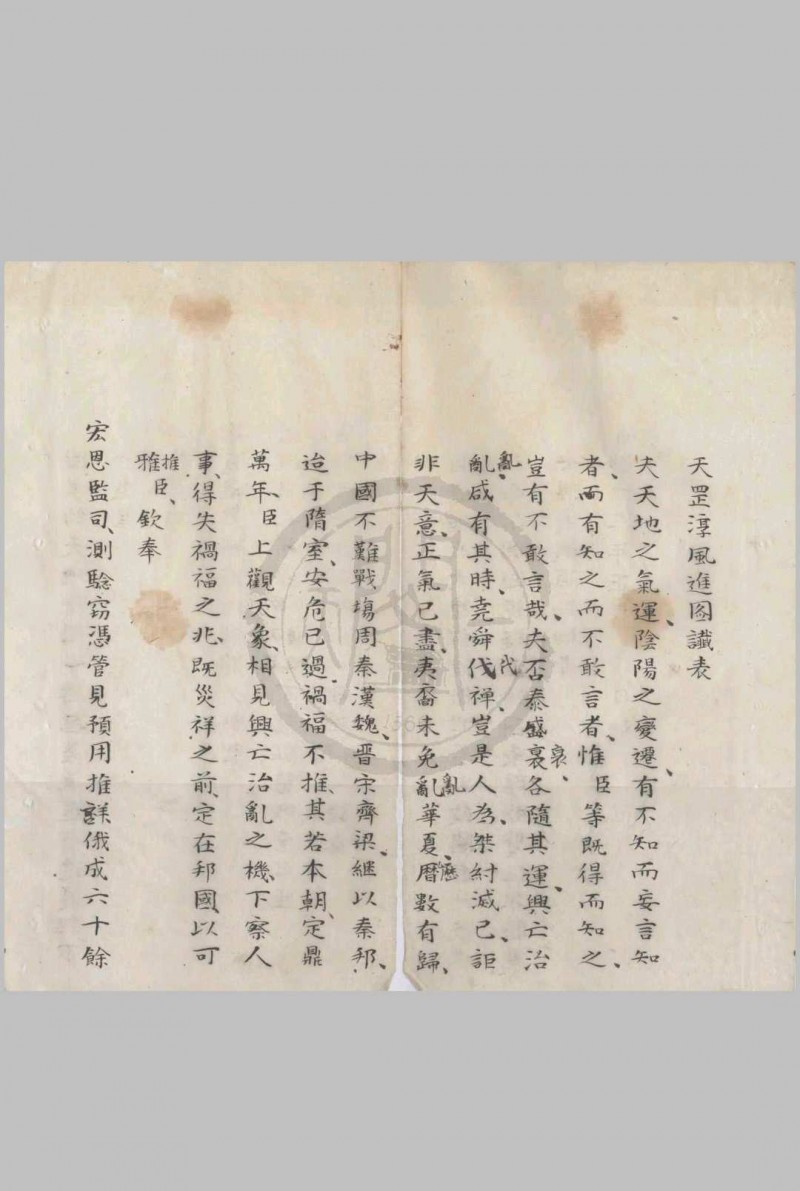 天罡淳風進圖讖表
夫天地之氣運、陰陽之變遷、有不知而妄言知
者、而有知之而不敢言者、惟臣等既得而知之、
豈有不敢言哉、夫否泰盛裏衰、各隨其運、興亡治
亂亂、咸有其時、堯舜伐代禅、豈是人為、桀紂滅已、詎
非天意、正氣已盡、夷裔未免亂亂華夏、曆歷數有歸、
中國不難戰塲周秦漢魏、晋宋齊梁、継以秦邦、
迨于隋室、安危已過、禍福不推、其若本朝、定鼎
萬年、臣上觀天象、相見興亡治亂之機、下察人
事、得失禍福之兆、既災祥之前、定在邦國、以可
雅推臣、欽奉
宏恩監司、測騐窃馮管見預用推詳俄成六十餘